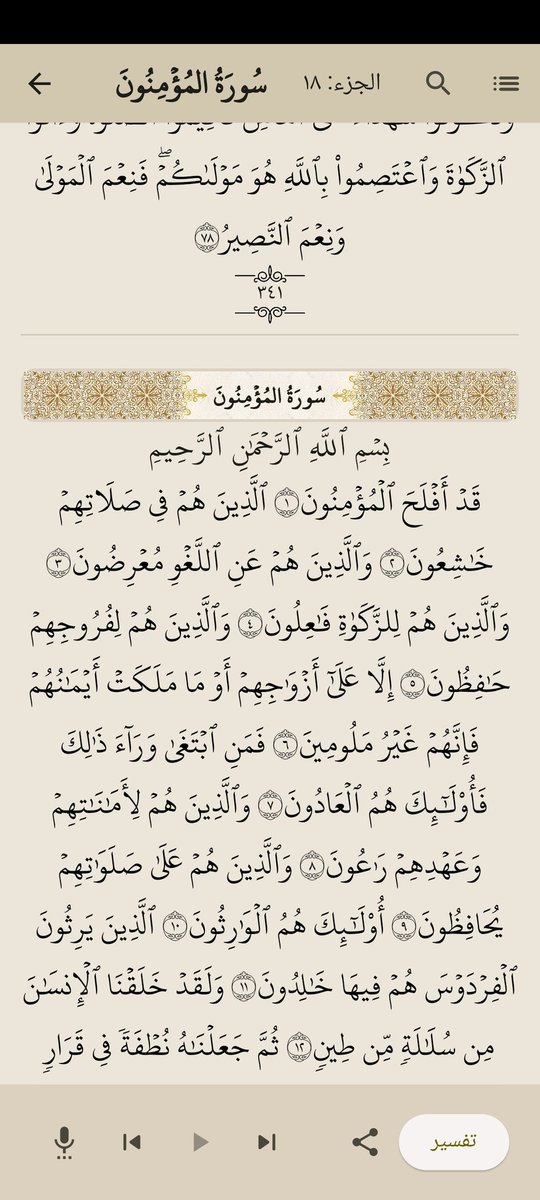 سُورَةُ المُؤۡمِنُونَ الجزء: ١٨
ٱلزَّكَوٰةَ وَٱعۡتَصِمُواْ بِٱللَّهِ هُوَ مَوۡلَىٰكُمۡۖ فَنِعۡمَ ٱلۡمَوۡلَىٰ
وَنِعۡمَ ٱلنَّصِيرُ ٧٨
٣٤١
سُورَةُ المُؤۡمِنُونَ
بِسۡمِ ٱللَّهِ ٱلرَّحۡمَٰنِ ٱلرَّحِيمِ
قَدۡ أَفۡلَحَ ٱلۡمُؤۡمِنُونَ ١ ٱلَّذِينَ هُمۡ فِي صَلَاتِهِمۡ
خَٰشِعُونَ ٢ وَٱلَّذِينَ هُمۡ عَنِ ٱللَّغۡوِ مُعۡرِضُونَ ٣
وَٱلَّذِينَ هُمۡ لِلزَّكَوٰةِ فَٰعِلُونَ ٤ وَٱلَّذِينَ هُمۡ لِفُرُوجِهِمۡ
حَٰفِظُونَ ٥ إِلَّا عَلَىٰٓ أَزۡوَٰجِهِمۡ أَوۡ مَا مَلَكَتۡ أَيۡمَٰنُهُمۡ
فَإِنَّهُمۡ غَيۡرُ مَلُومِينَ ٦ فَمَنِ ٱبۡتَغَىٰ وَرَآءَ ذَٰلِكَ
فَأُوْلَٰٓئِكَ هُمُ ٱلۡعَادُونَ ٧ وَٱلَّذِينَ هُمۡ لِأَمَٰنَٰتِهِمۡ
وَعَهۡدِهِمۡ رَٰعُونَ ٨ وَٱلَّذِينَ هُمۡ عَلَىٰ صَلَوَٰتِهِمۡ
يُحَافِظُونَ ٩ أُوْلَٰٓئِكَ هُمُ ٱلۡوَٰرِثُونَ ١٠ ٱلَّذِينَ يَرِثُونَ
ٱلۡفِرۡدَوۡسَ هُمۡ فِيهَا خَٰلِدُونَ ١١ وَلَقَدۡ خَلَقۡنَا ٱلۡإِنسَٰنَ
مِن سُلَٰلَةٖ مِّن طِينٖ ١٢ ثُمَّ جَعَلۡنَٰهُ نُطۡفَةٗ فِي قَرَارٖ
تفسير